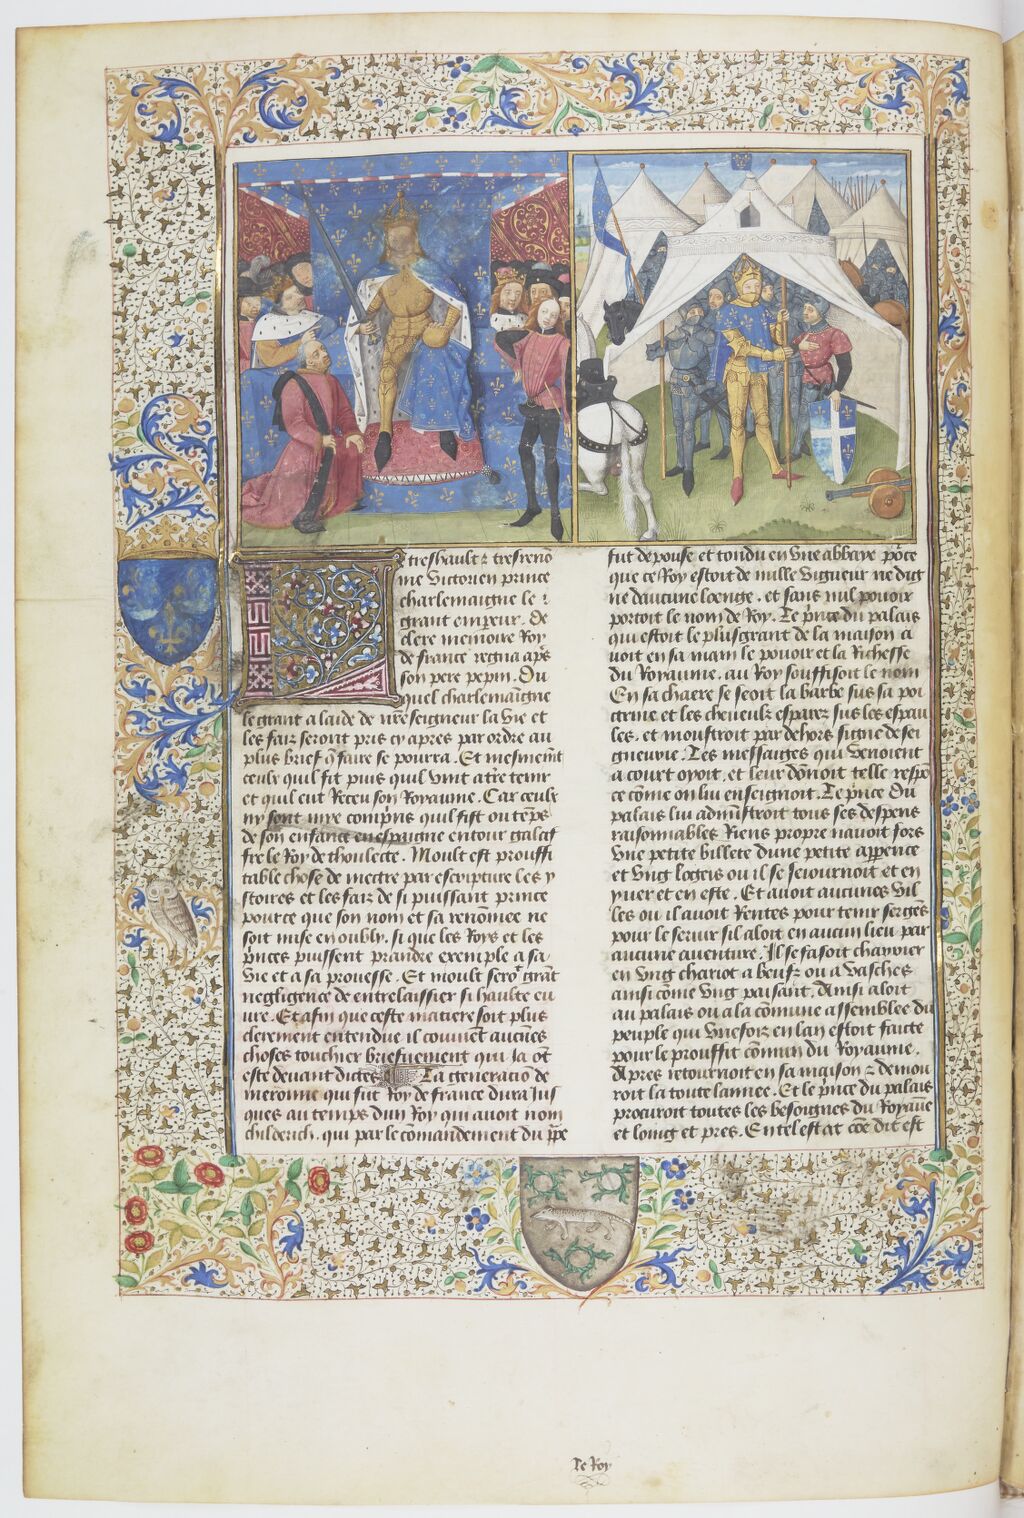 e treshault & tresreno
me Victorien prince
charlemaigne le
grant empereur. De
clere memoire Roy
de france regna apꝭ
son pere pepin. Du
quel charlemaigne
le grant a laide de nr̄e seigneur la vie et
les faiz seront pris cy apres par ordre au
plus brief q̄ faire se pourra. Et mesmem̄t
ceulx quil fit puis quil vint a tr̄e tenir
et quil eut Receu son Royaume. Car ceulx
ny sont mye compr̄is quil fist ou tēps
de son enfance en espaigne entour galaf
fre le Roy de thoulecte. Moult est prouffi
table chose de mectre par escripture les y
stoires et les faiz de si puissant prince
pource que son nom et sa renōmee ne
soit mise en oubly. si que les Roys et les
p̄nces puissent prandre exemple a sa
vie et a sa prouesse. Et moult seroit grāt
negligence de entrelaissier si haulte eu
ure. Et afin que ceste matiere soit plus
clerement entendue il couuiēt aucūes
choses touchier briefuement qui ja ōt
este deuant dictes La generacō de
meronne qui fut Roy de france dura jus
ques au temps dun Roy qui auoit nom
childerich. qui par le cōmandement du p̄pe
fut depouse et tondu en vne abbaye pōce
que ce Roy estoit de nulle vigueur ne dig
ne daucune loenge. et sans nul pouoir
portoit le nom de Roy. Le p̄nce du palais
qui estoit le plus grant de la maison a
uoit en sa main le pouoir et la Richesse
du Royaume. au Roy souffisoit le nom
En sa chaere se seoit la barbe sus sa poi
ctrine et les cheueulx esparez sus les espau
les. et monstroit par dehors signe de sei
gneurie. Les messaiges qui venoient
a court oyoit. et leur dōnoit telle respō
ce cōme on lui enseignoit. Le p̄nce du
palais lui admīstroit tous ses despens
raisonnables Riens propre nauoit fors
vne petite villete dune petite apparence
et vng logeis ou il se seiournoit et en
yuer et en este. Et auoit aucunes vil
les ou il auoit Rentes pour tenir sergēs
pour le seruir sil aloit en aucun lieu par
aucune auenture. Il se fasoit charrier
en vng chariot a beufz ou a vasches
ainsi cōme vng paisant. Ainsi aloit
au palais ou a la cōmune assemblee du
peuple qui vnefoiz en lan estoit faicte
pour le prouffit cōmun du Royaume.
Apres retournoit en sa maison & demou
roit la toute lannee. Et le p̄nce du palais
procuroit toutes les besoignes du Royaūe
et loing et pres. En tel estat cōe dit est
Le Roy